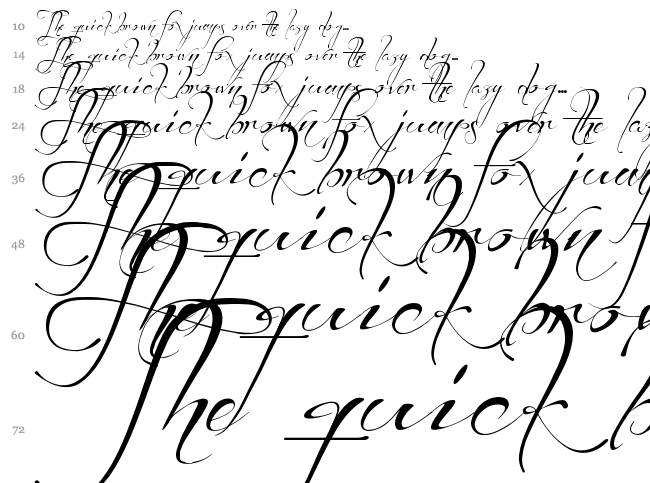 10 The quick brown fox jumps over the lazy dog...
14 The quick brown fox jumps over the lazy dog...
18 The quick brown fox jumps over the lazy dog...
24 The quick brown fox jumps over the
36 The quick brown fox
48 The quick brown
60 The quick
72 The quick